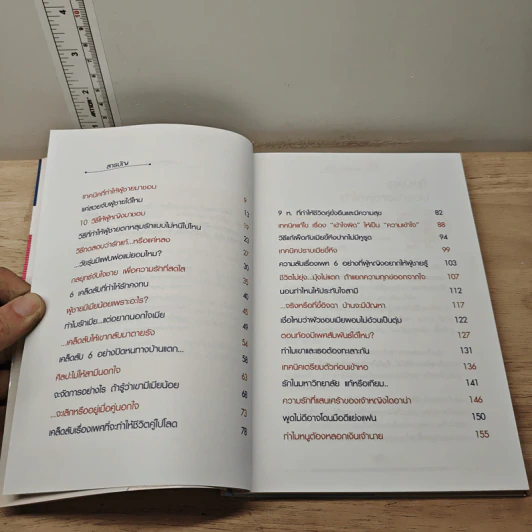 สารบัญ
เทคนิคที่ทำให้ผู้ชายมาชอบ 9
แค่สวยจับผู้ชายได้ไหม 13
10 วิธีให้ผู้หญิงมาชอบ
วิธีที่ทำให้ผู้ชายตกหลุมรักแบบไม่หนีไปไหน 23
วิธีทดสอบว่ารักแท้...หรือแค่หลง 25
...วัยรุ่นมีแฟนพ่อแม่ยอมไหม? 30
กลยุทธ์จับใจชาย เพื่อความรักที่สดใส 35
6 เคล็ดลับที่ทำให้รักคงทน 40
ผู้ชายมีเมียน้อยเพราะอะไร? 45
ทำไมรักเมีย...แต่อยากนอกใจเมีย 49
...เคล็ดลับให้เขากลับมาตายรัง 54
เคล็ดลับ 6 อย่างปิดหนทางบ้านแตก... 58
ศิลปะไม่ให้สามีนอกใจ 63
จะจัดการอย่างไร ถ้ารู้ว่าเขามีเมียน้อย 68
...จะเลิกหรืออยู่เมื่อคู่นอกใจ 73
เคล็ดลับเรื่องเพศที่จะทำให้ชีวิตคู่ไปโลด 78
9 ท. ที่ทำให้ชีวิตคู่ยั่งยืนและมีความสุข 82
เทคนิคแก้ไข เรื่อง "เข้าใจผิด" ให้เป็น "ความเข้าใจ" 88
วิธีแก้เผ็ดกับเมียขี้หึงปากไม่มีหูรูด 94
เทคนิคปราบเมียขี้หึง 99
ความลับเรื่องเพศ 6 อย่างที่ผู้หญิงอยากให้ผู้ชายรู้ 103
ชีวิตไม่ยุ่ง...มุ้งไม่แตก ถ้าแยกความทุกข์ออกจากใจ 107
นอนท่าไหนให้ประทับใจสามี 112
...จริงหรือที่ขี้อิจฉา บ้านจะมีปัญหา 117
เชื่อไหมว่าผัวชอบเมียผอมไม่อ้วนเป็นตุ่ม 122
ตอนท้องมีเพศสัมพันธ์ได้ไหม? 127
ทำไมเขาและเธอต้องทะเลาะกัน 131
เทคนิคเตรียมตัวก่อนเข้าหอ 136
รักในมหาวิทยาลัย แท้หรือเทียม.. 141
ความรักที่แสนเศร้าของเจ้าหญิงไดอาน่า 146
พูดไม่ดีอาจโดนมือดีแย่งแฟน 150
ทำไมหนูต้องหลอกเงินเจ้านาย 155